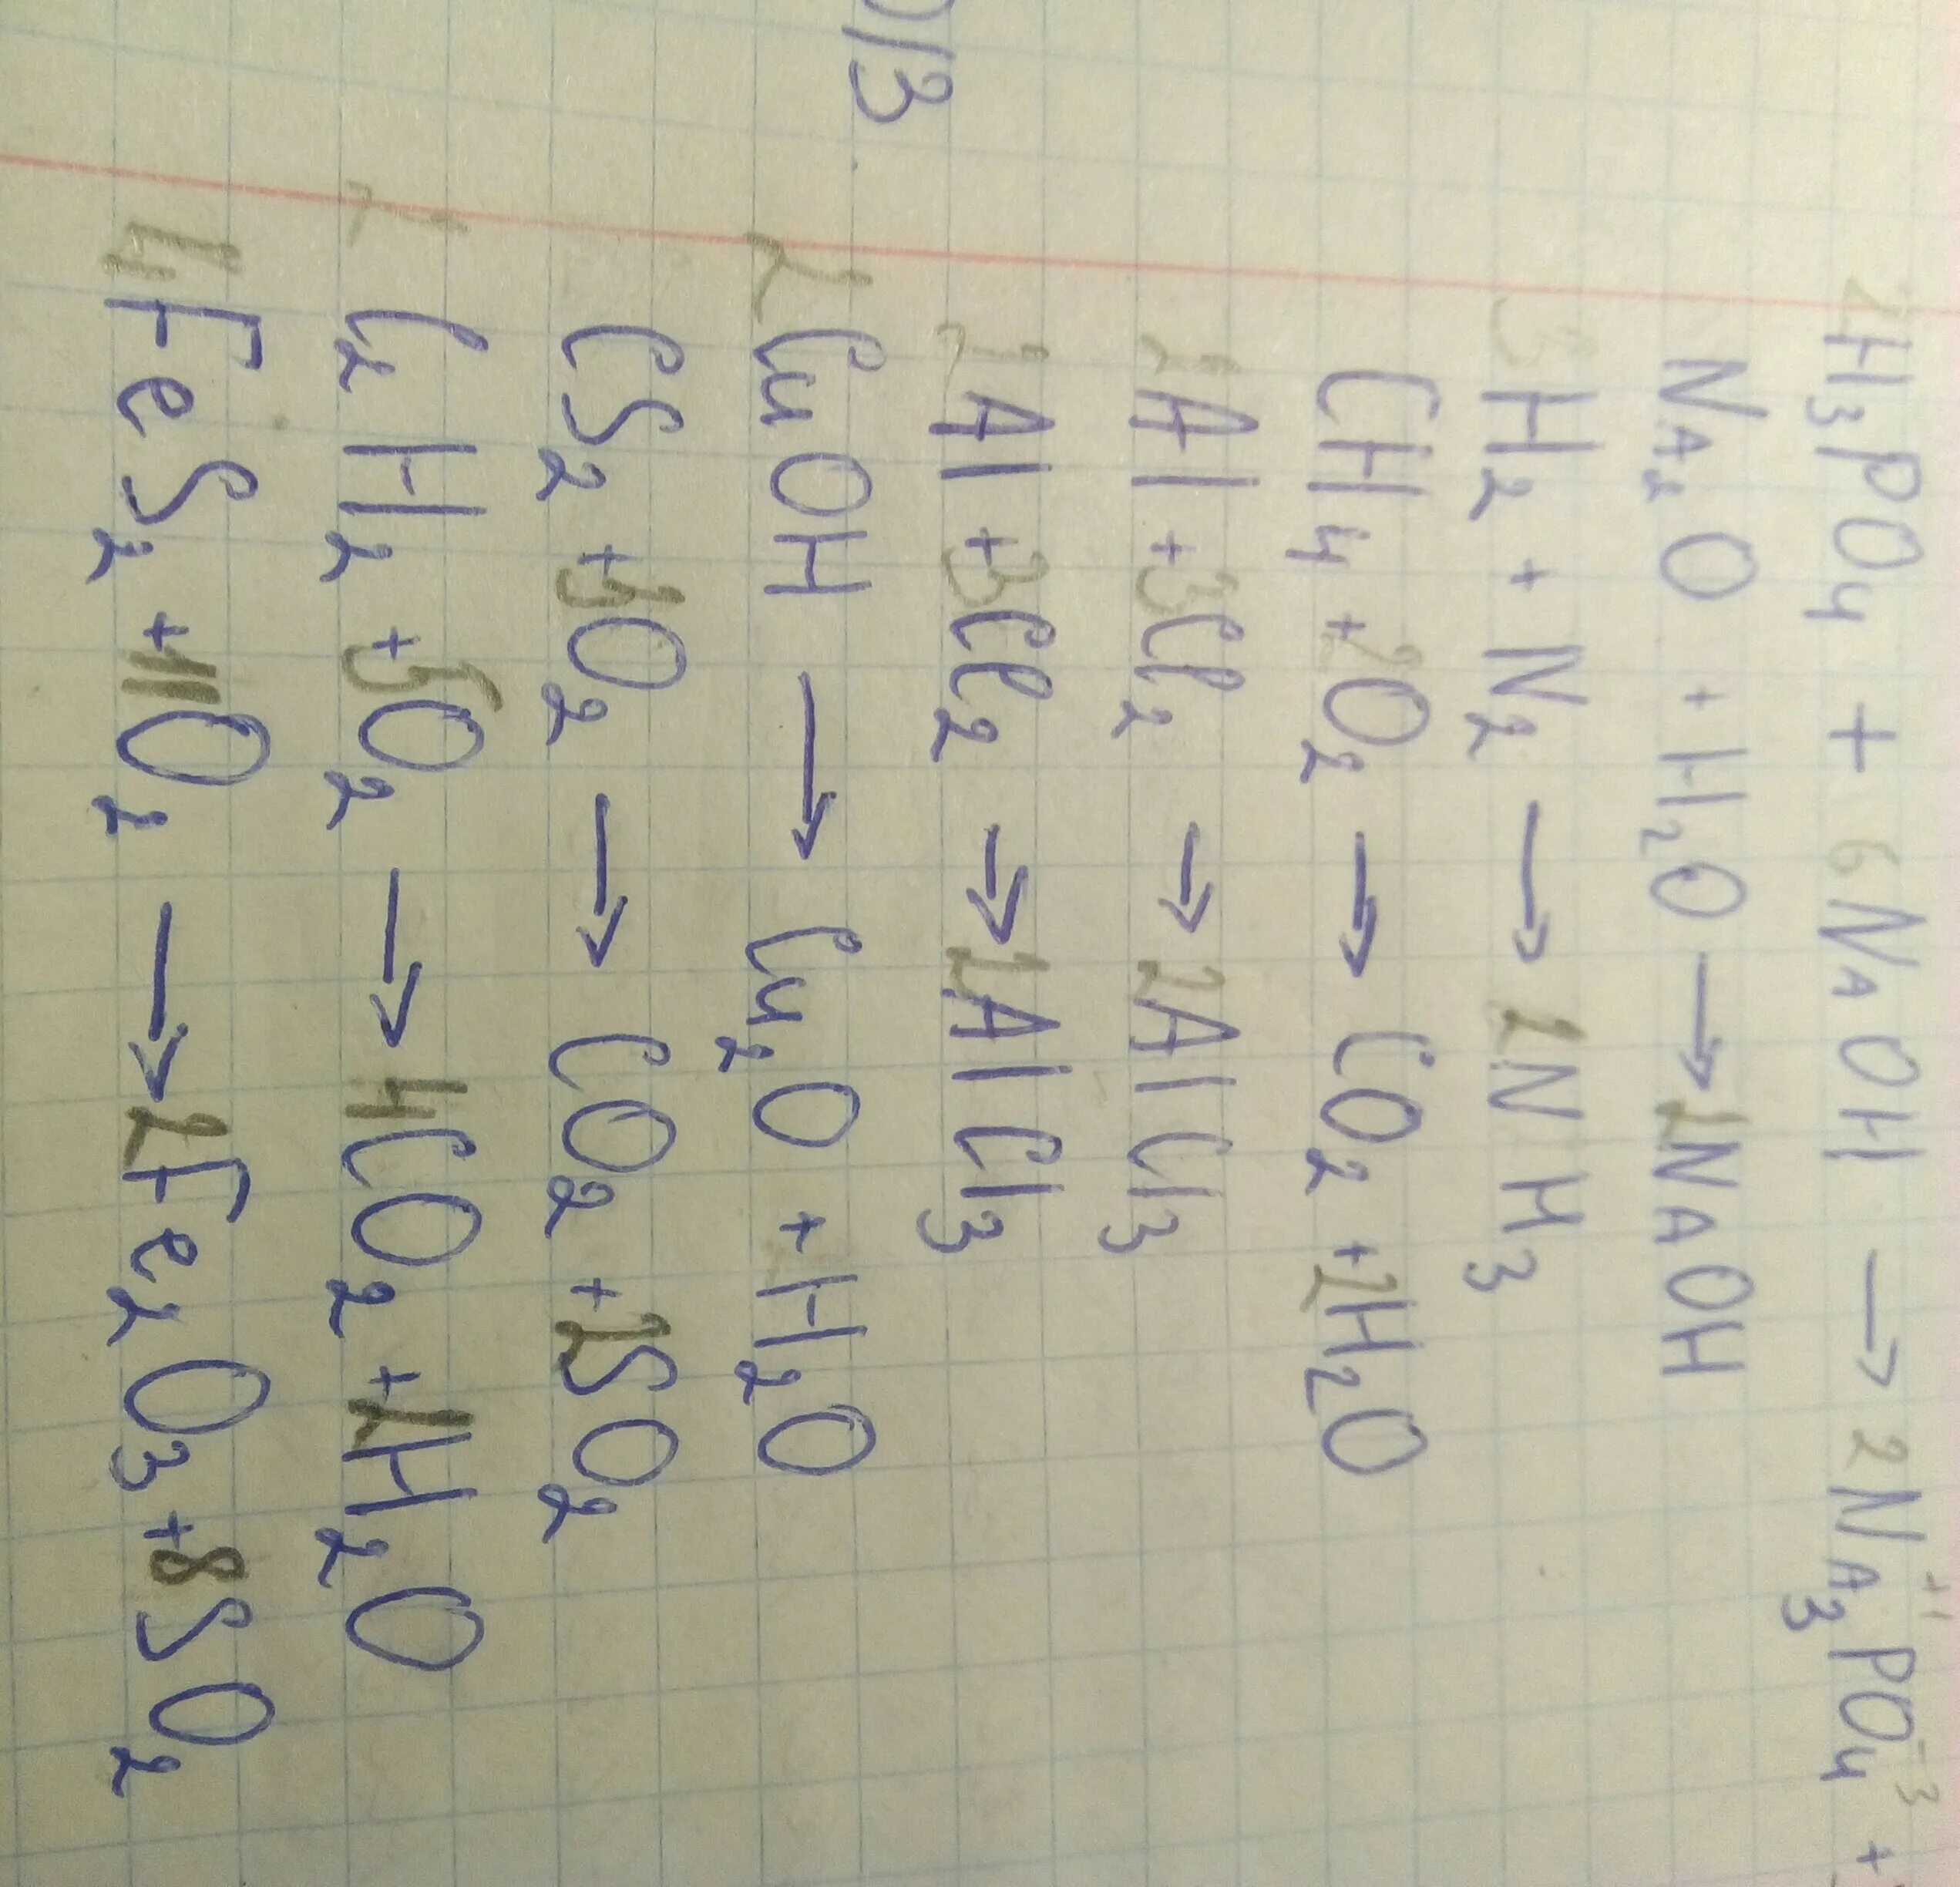 2H₃PO₄ + 6NaOH → 2Na₃⁺¹PO₄⁻³ +
Na₂O + H₂O → 2NaOH
3H₂ + N₂ → 2NH₃
CH₄ + 2O₂ → CO₂ + 2H₂O
2Al + 3Cl₂ → 2AlCl₃
2Al + 3Cl₂ → 2AlCl₃
Д/З
2CuOH → Cu₂O + H₂O
CS₂ + 3O₂ → CO₂ + 2SO₂
2C₂H₂ + 5O₂ → 4CO₂ + 2H₂O
4FeS₂ + 11O₂ → 2Fe₂O₃ + 8SO₂